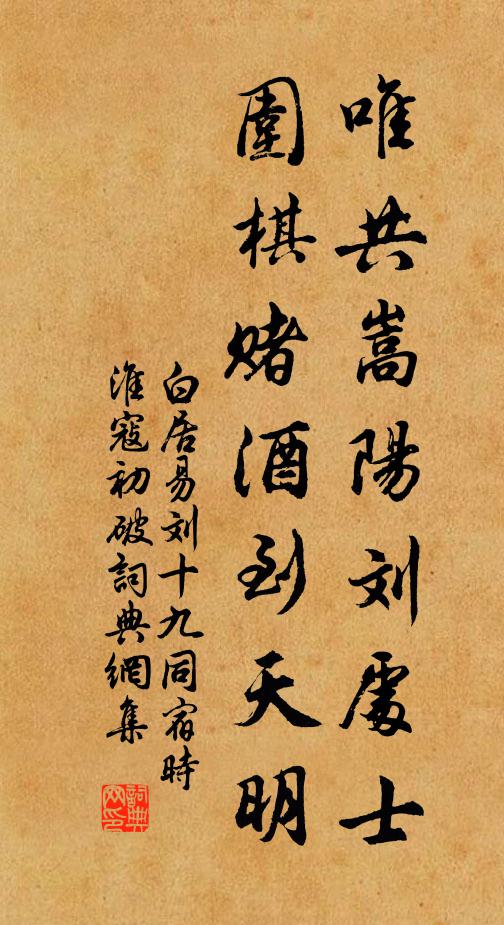 唯共嵩陽刘處士
圍棋賭酒到天明
白居易刘十九同宿時
淮寇初破詞典網集
詞典
网印